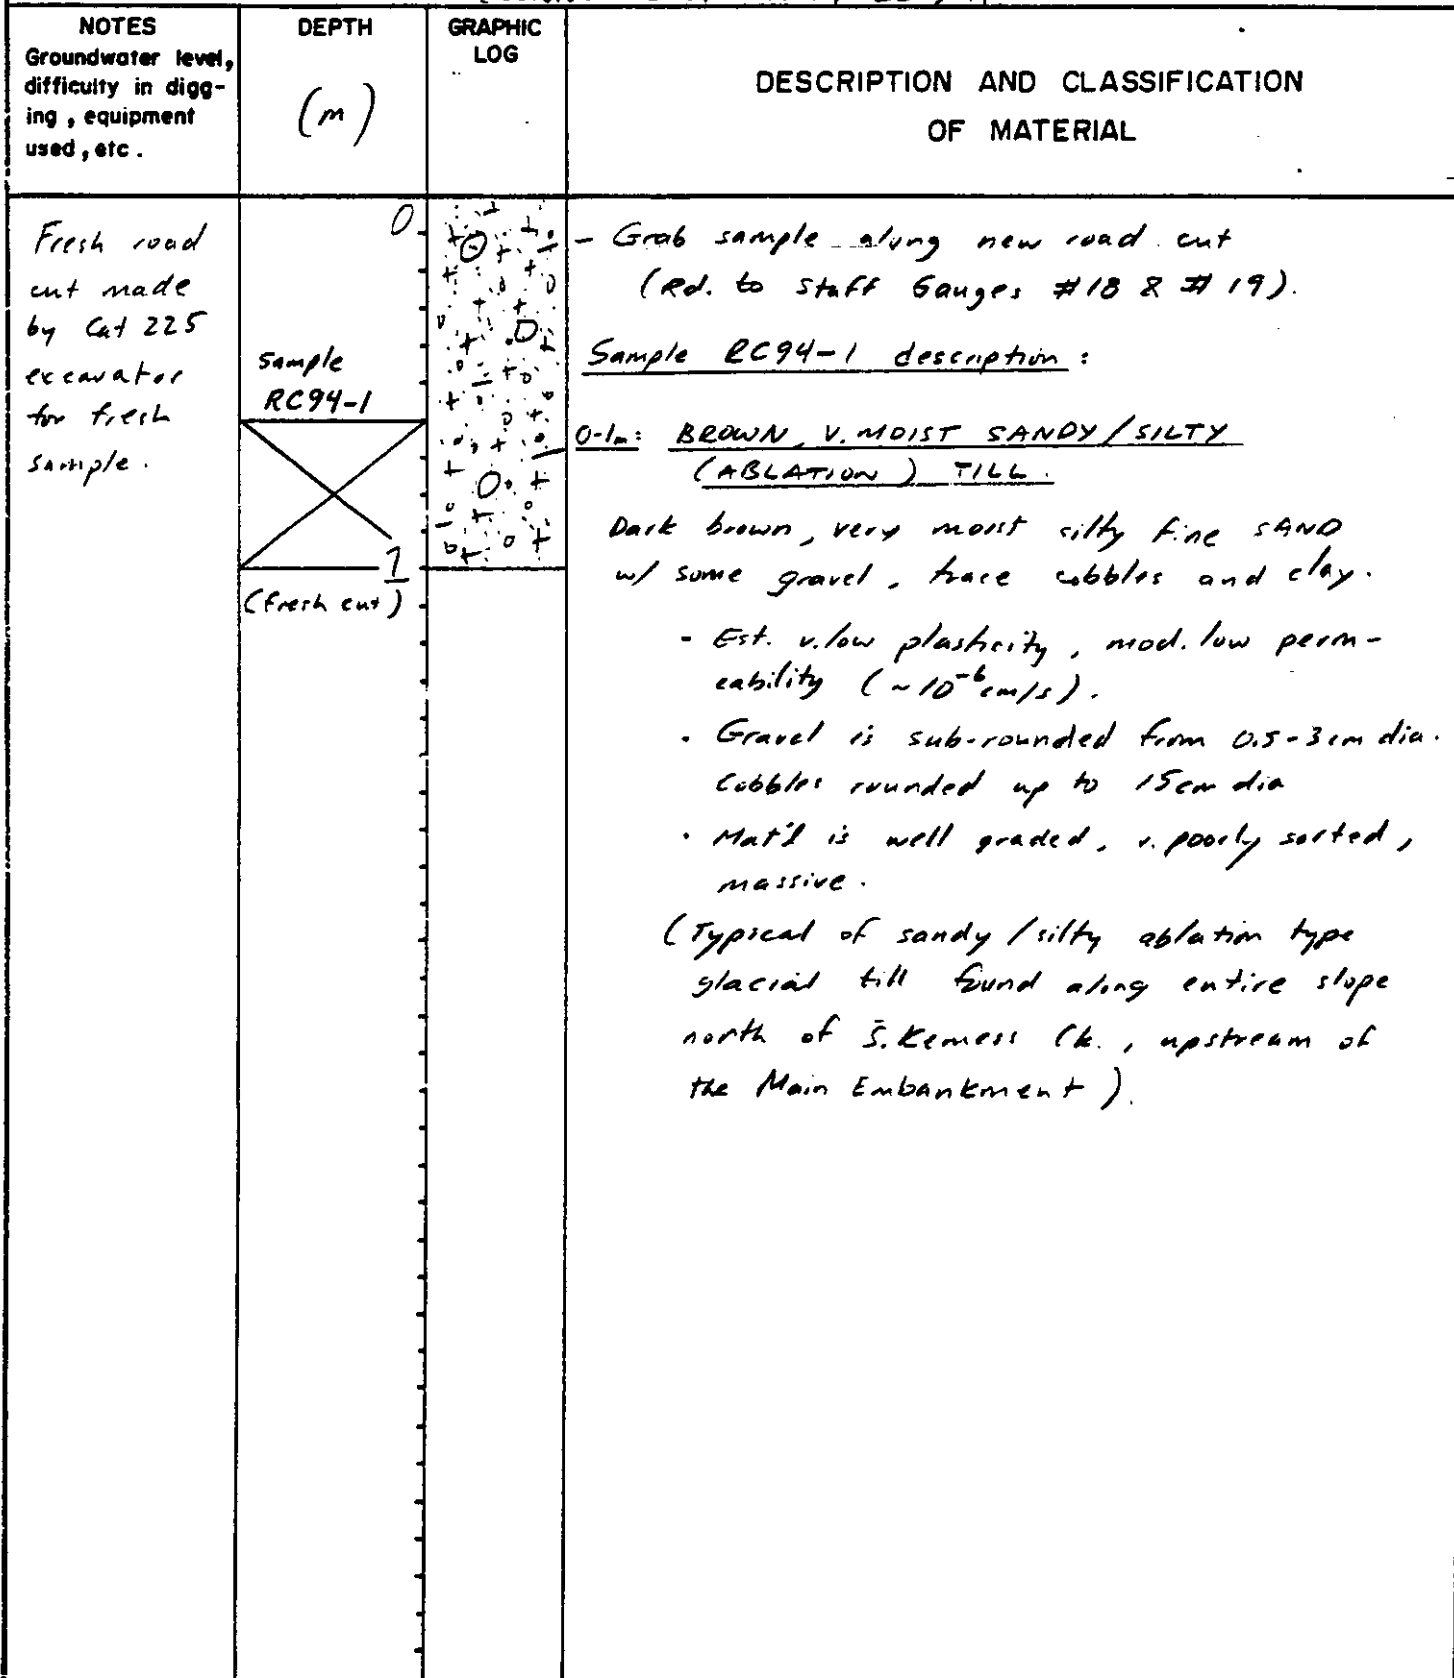 NOTES
Groundwater level,
difficulty in digg-
ing, equipment
used, etc.
DEPTH
(m)
GRAPHIC
LOG
DESCRIPTION AND CLASSIFICATION
OF MATERIAL
Fresh road
cut made
by Cat 225
excavator
for fresh
sample.
0
Sample
RC94-1
1
(fresh cut)
- Grab sample along new road cut
(Rd. to Staff Gauges #18 & #19).
Sample RC94-1 description:
0-1m: BROWN, V. MOIST SANDY/SILTY
(ABLATION) TILL.
Dark brown, very moist silty fine SAND
w/ some gravel, trace cobbles and clay.
- Est. v. low plasticity, mod. low perm-
eability (~10⁻⁶ cm/s).
- Gravel is sub-rounded from 0.5-3cm dia.
Cobbles rounded up to 15cm dia
- Mat'l is well graded, v. poorly sorted,
massive.
(Typical of sandy/silty ablation type
glacial till found along entire slope
north of S. Kemess Ck., upstream of
the Main Embankment).